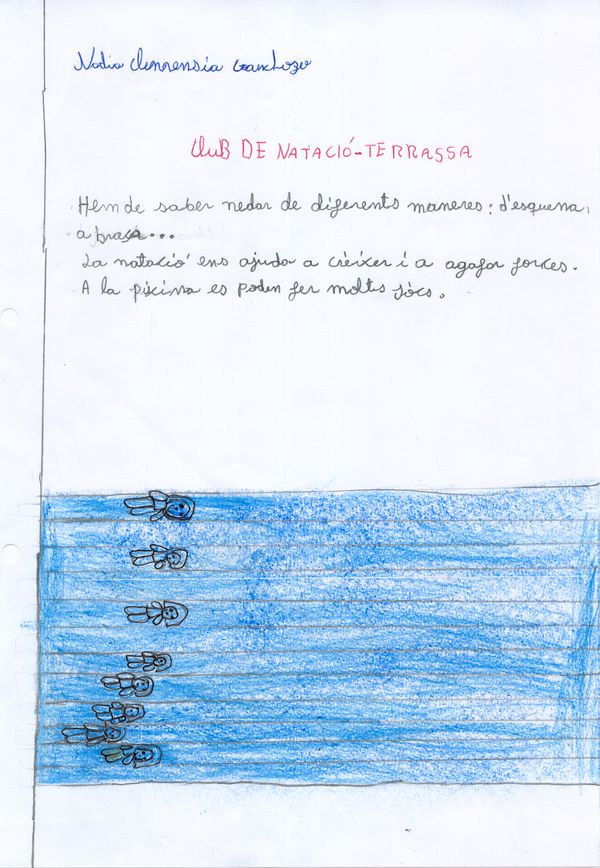 Nadia
CLUB DE NATACIÓ-TERRASSA
Hem de saber nedar de diferents maneres: d'esquena,
a braça...
La natació ens ajuda a crèixer i a agafar forces.
A la piscina es poden fer molts jocs.